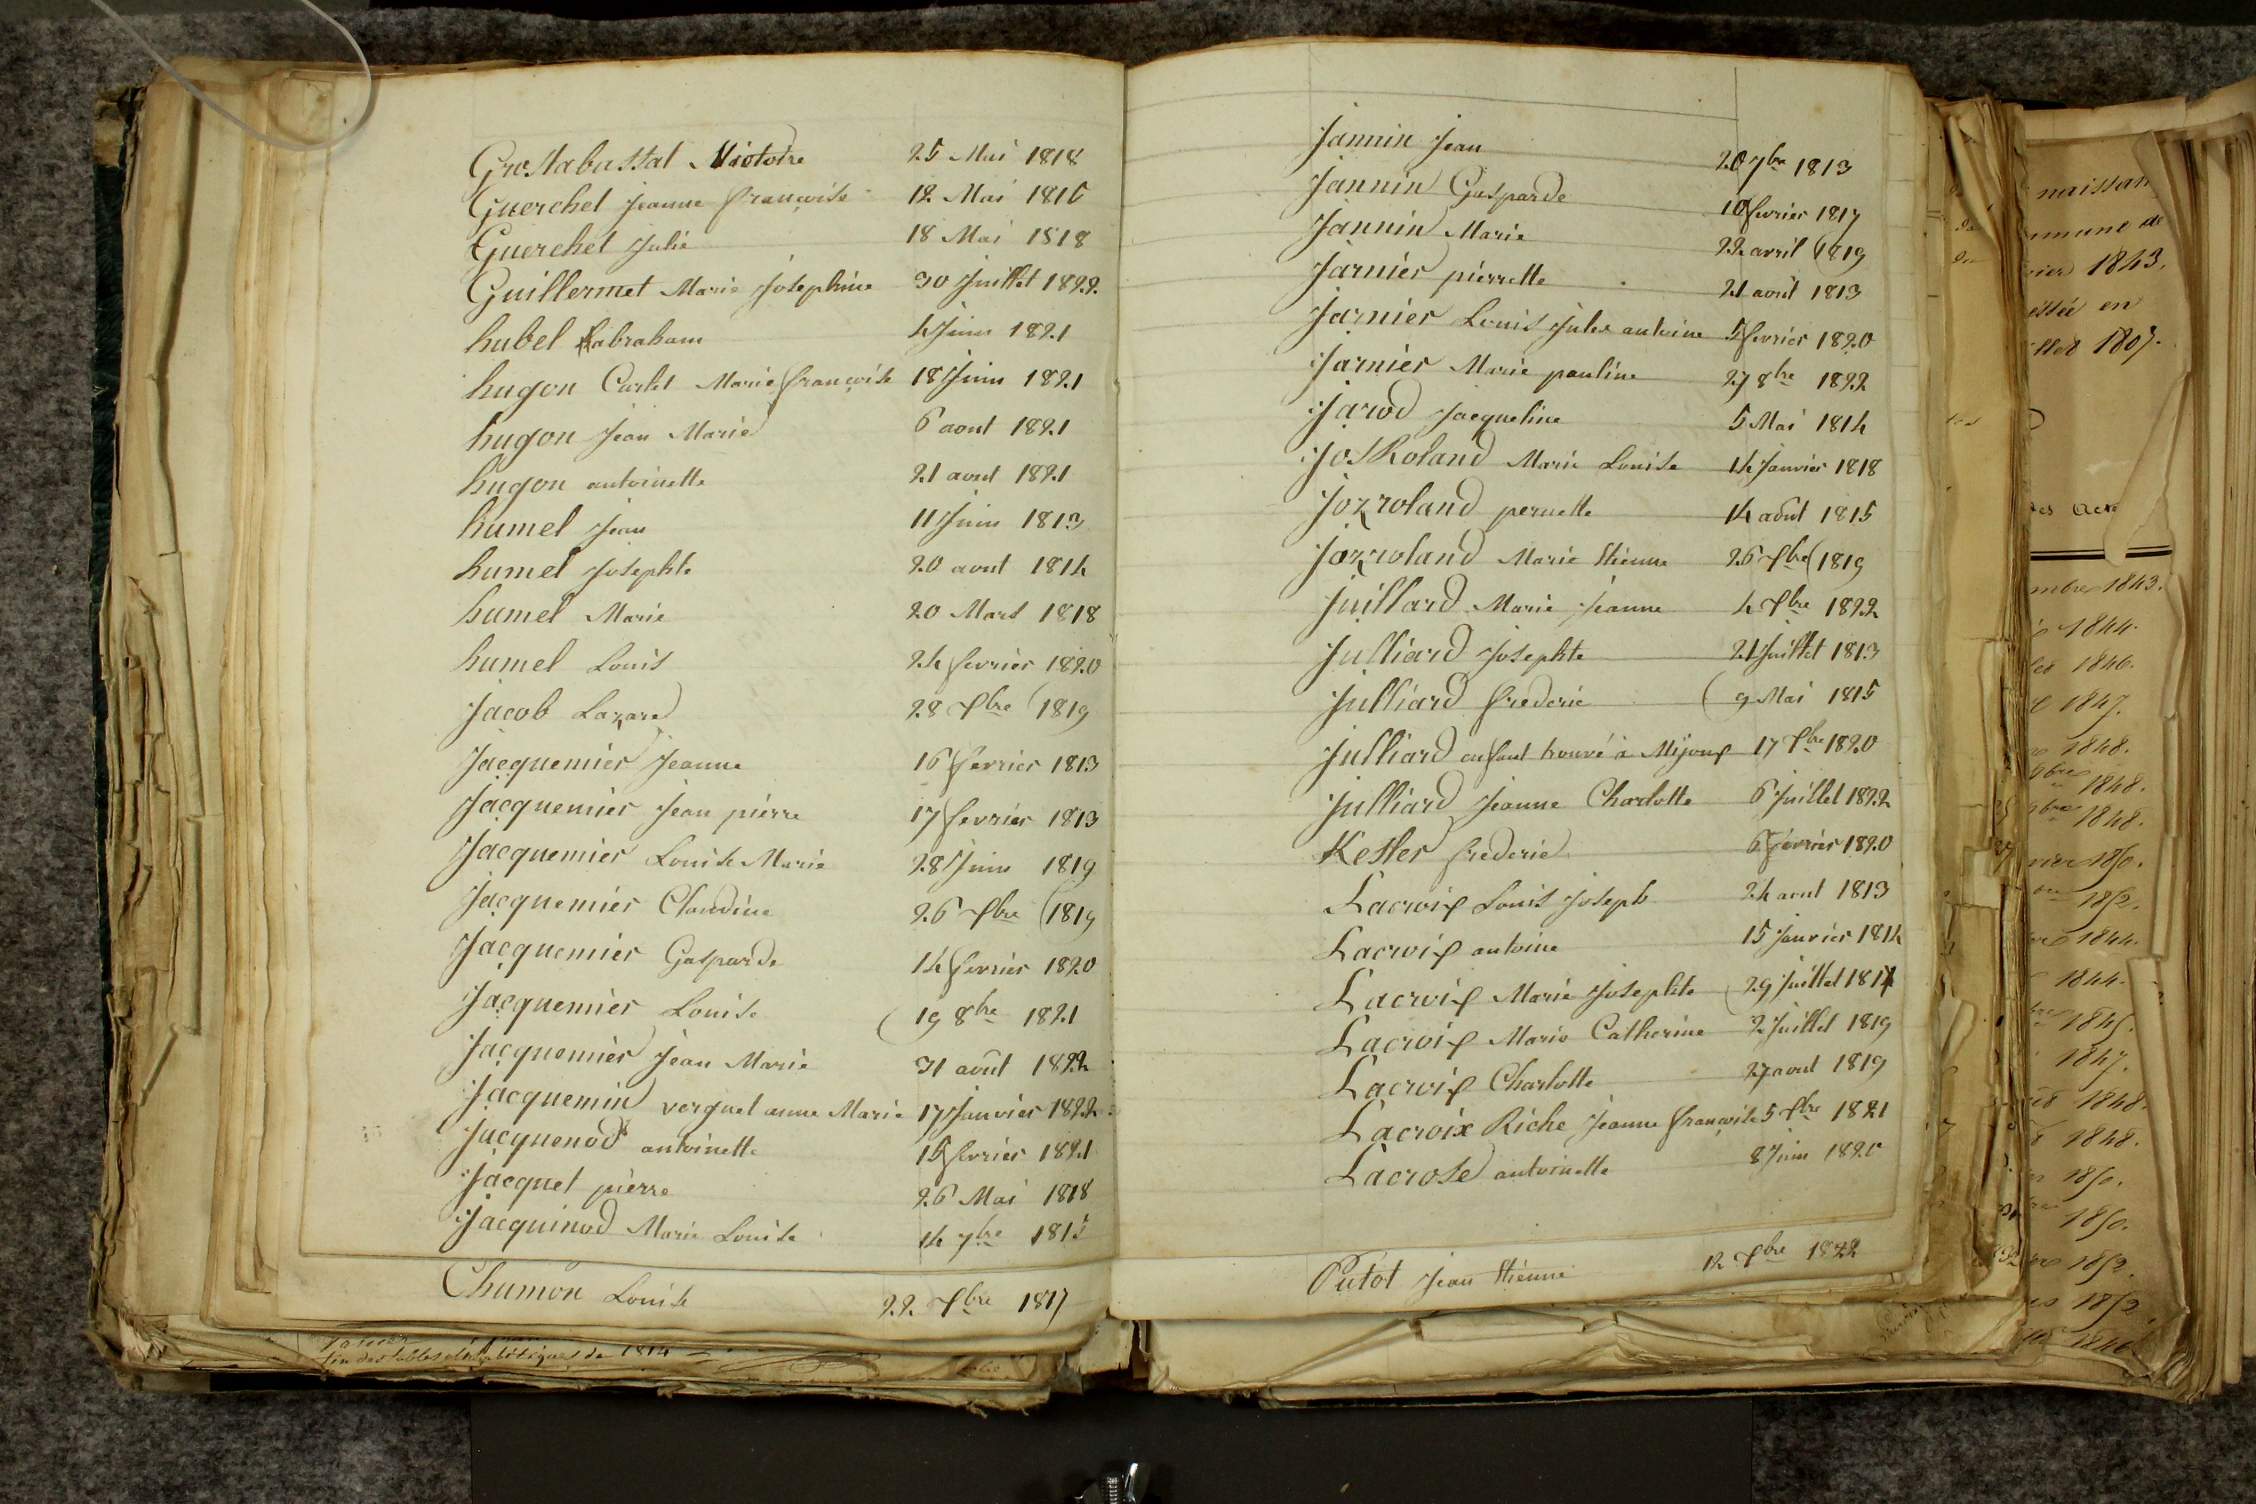 Grostabassat Victoire 25 Mai 1818
Guerchet Jeanne françoise 12 Mai 1815
Guerchet Julie 18 Mai 1818
Guillermet Marie Josephine 30 Juillet 1822
hubel abraham 4 Juin 1821
hugon Carlet Marie françoise 18 Juin 1821
hugon Jean Marie 6 aout 1821
hugon antoinette 21 aout 1821
humel Jean 11 Juin 1813
humel Josephte 20 aout 1814
humel Marie 20 Mars 1818
humel Louis 24 fevrier 1820
Jacob Lazare 28 Xbre 1819
Jacquemier Jeanne 16 fevrier 1813
Jacquemier Jean pierre 17 fevrier 1813
Jacquemier Louise Marie 28 Juin 1819
Jacquemier Claudine 26 Xbre 1819
Jacquemier Gasparde 14 fevrier 1820
Jacquemier Louise 19 8bre 1821
Jacquemier Jean Marie 31 août 1822
Jacquemin verguet anne Marie 17 Janvier 1822
Jacquenod antoinette 15 fevrier 1821
Jacquet pierre 26 Mai 1818
Jacquinod Marie Louise 14 7bre 1815
Chumon Louise 22 Xbre 1817
fin des tables alphabétiques de 1814
Jannin Jean 20 7bre 1813
Jannin Gasparde 10 fevrier 1817
Jannin Marie 22 avril 1819
Jarnier pierrette 21 avril 1813
Jarnier Louis Jules antoine 5 fevrier 1820
Jarnier Marie pauline 27 8bre 1822
Jarod Jacqueline 5 Mai 1814
Josroland Marie Louise 14 Janvier 1818
Jozroland pernette 14 août 1815
Jozroland Marie Etienne 26 Xbre 1819
Juillard Marie Jeanne 4 Xbre 1822
Julliard Josephte 21 Juillet 1813
Julliard frederic 9 Mai 1815
Julliard enfant trouvé à Mijoux 17 Xbre 1820
Julliard Jeanne Charlotte 6 Juillet 1822
Kesler frederic 6 fevrier 1820
Lacroix Louis Joseph 24 aout 1813
Lacroix antoine 15 Janvier 1814
Lacroix Marie Josephte 29 Juillet 1814
Lacroix Marie Catherine 2 Juillet 1819
Lacroix Charlotte 27 aout 1819
Lacroix Riche Jeanne françoise 5 Xbre 1821
Lacrose antoinette 8 Juin 1820
Putot Jean Etienne 12 Xbre 1822
1843.
en
1807.
1843.
1844.
1846.
1847.
1848.
1848.
1848.
1850.
1852.
1844.
1844.
1845.
1847.
1848.
1848.
1850.
1850.
1852.
1852.
1846